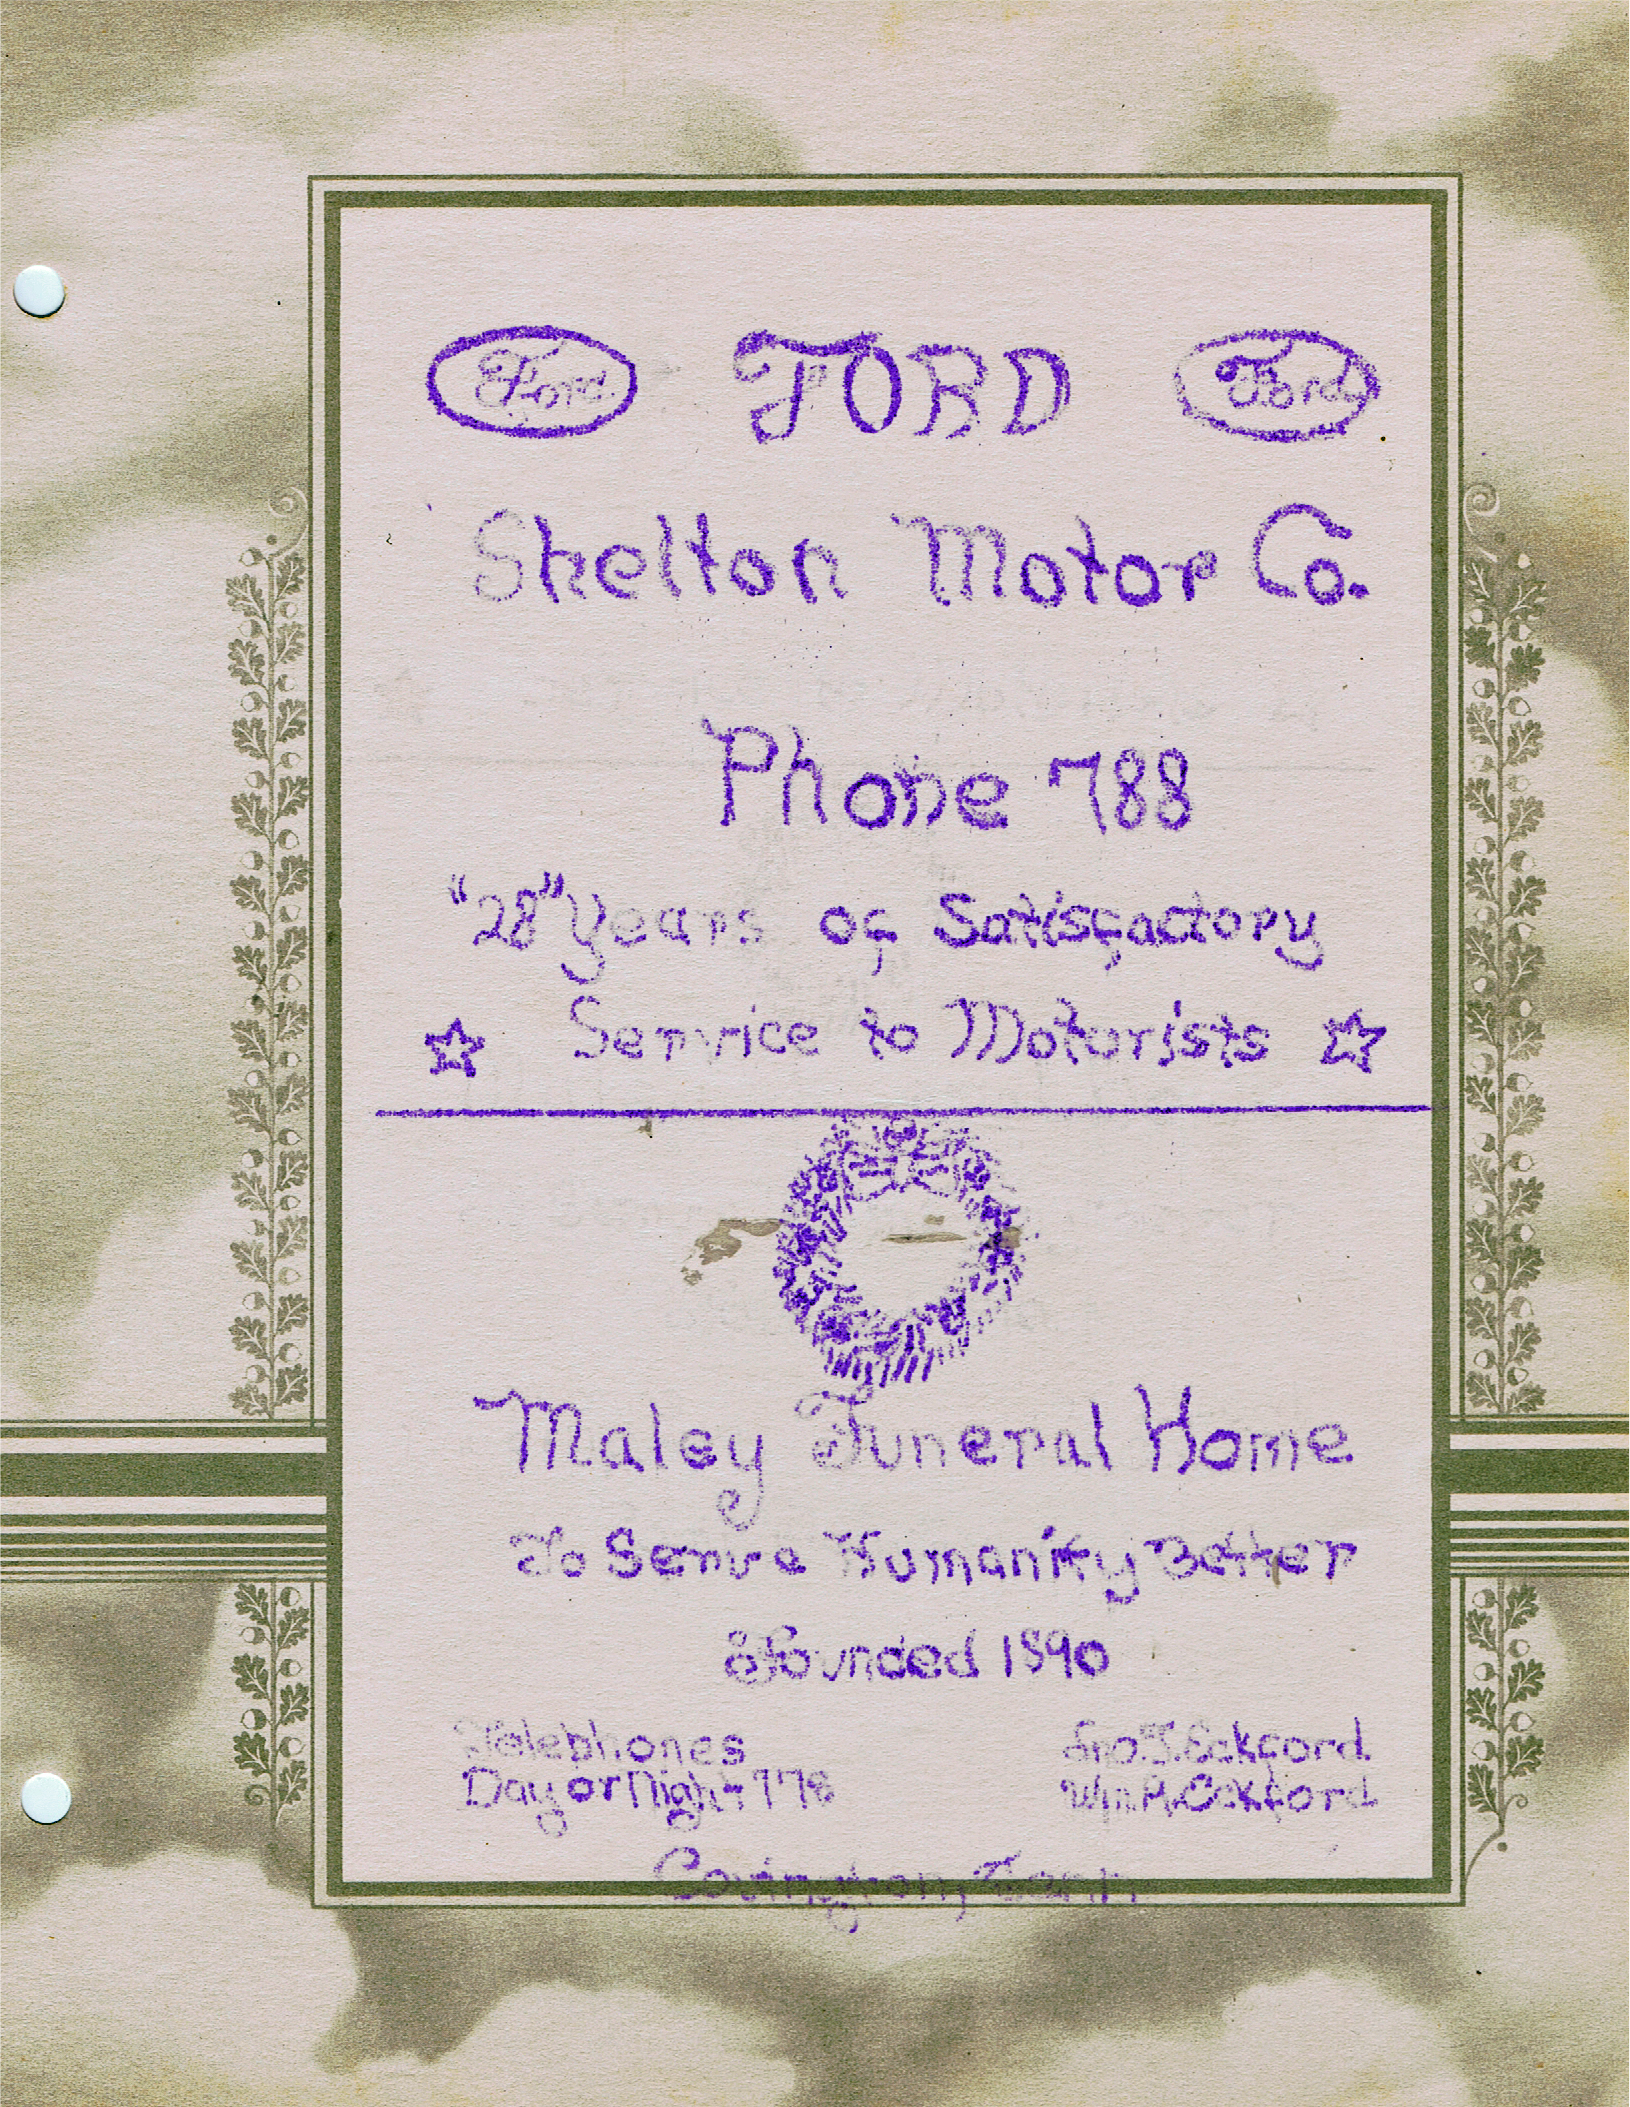 Ford FORD Ford
Shelton Motor Co.
Phone 788
"28" Years of Satisfactory
Service to Motorists
Maley Funeral Home
To Serve Humanity Better
Founded 1890
Telephones
Day or Night 778
Jno. T. Eckford
Wm. A. Eckford
Covington, Tenn.